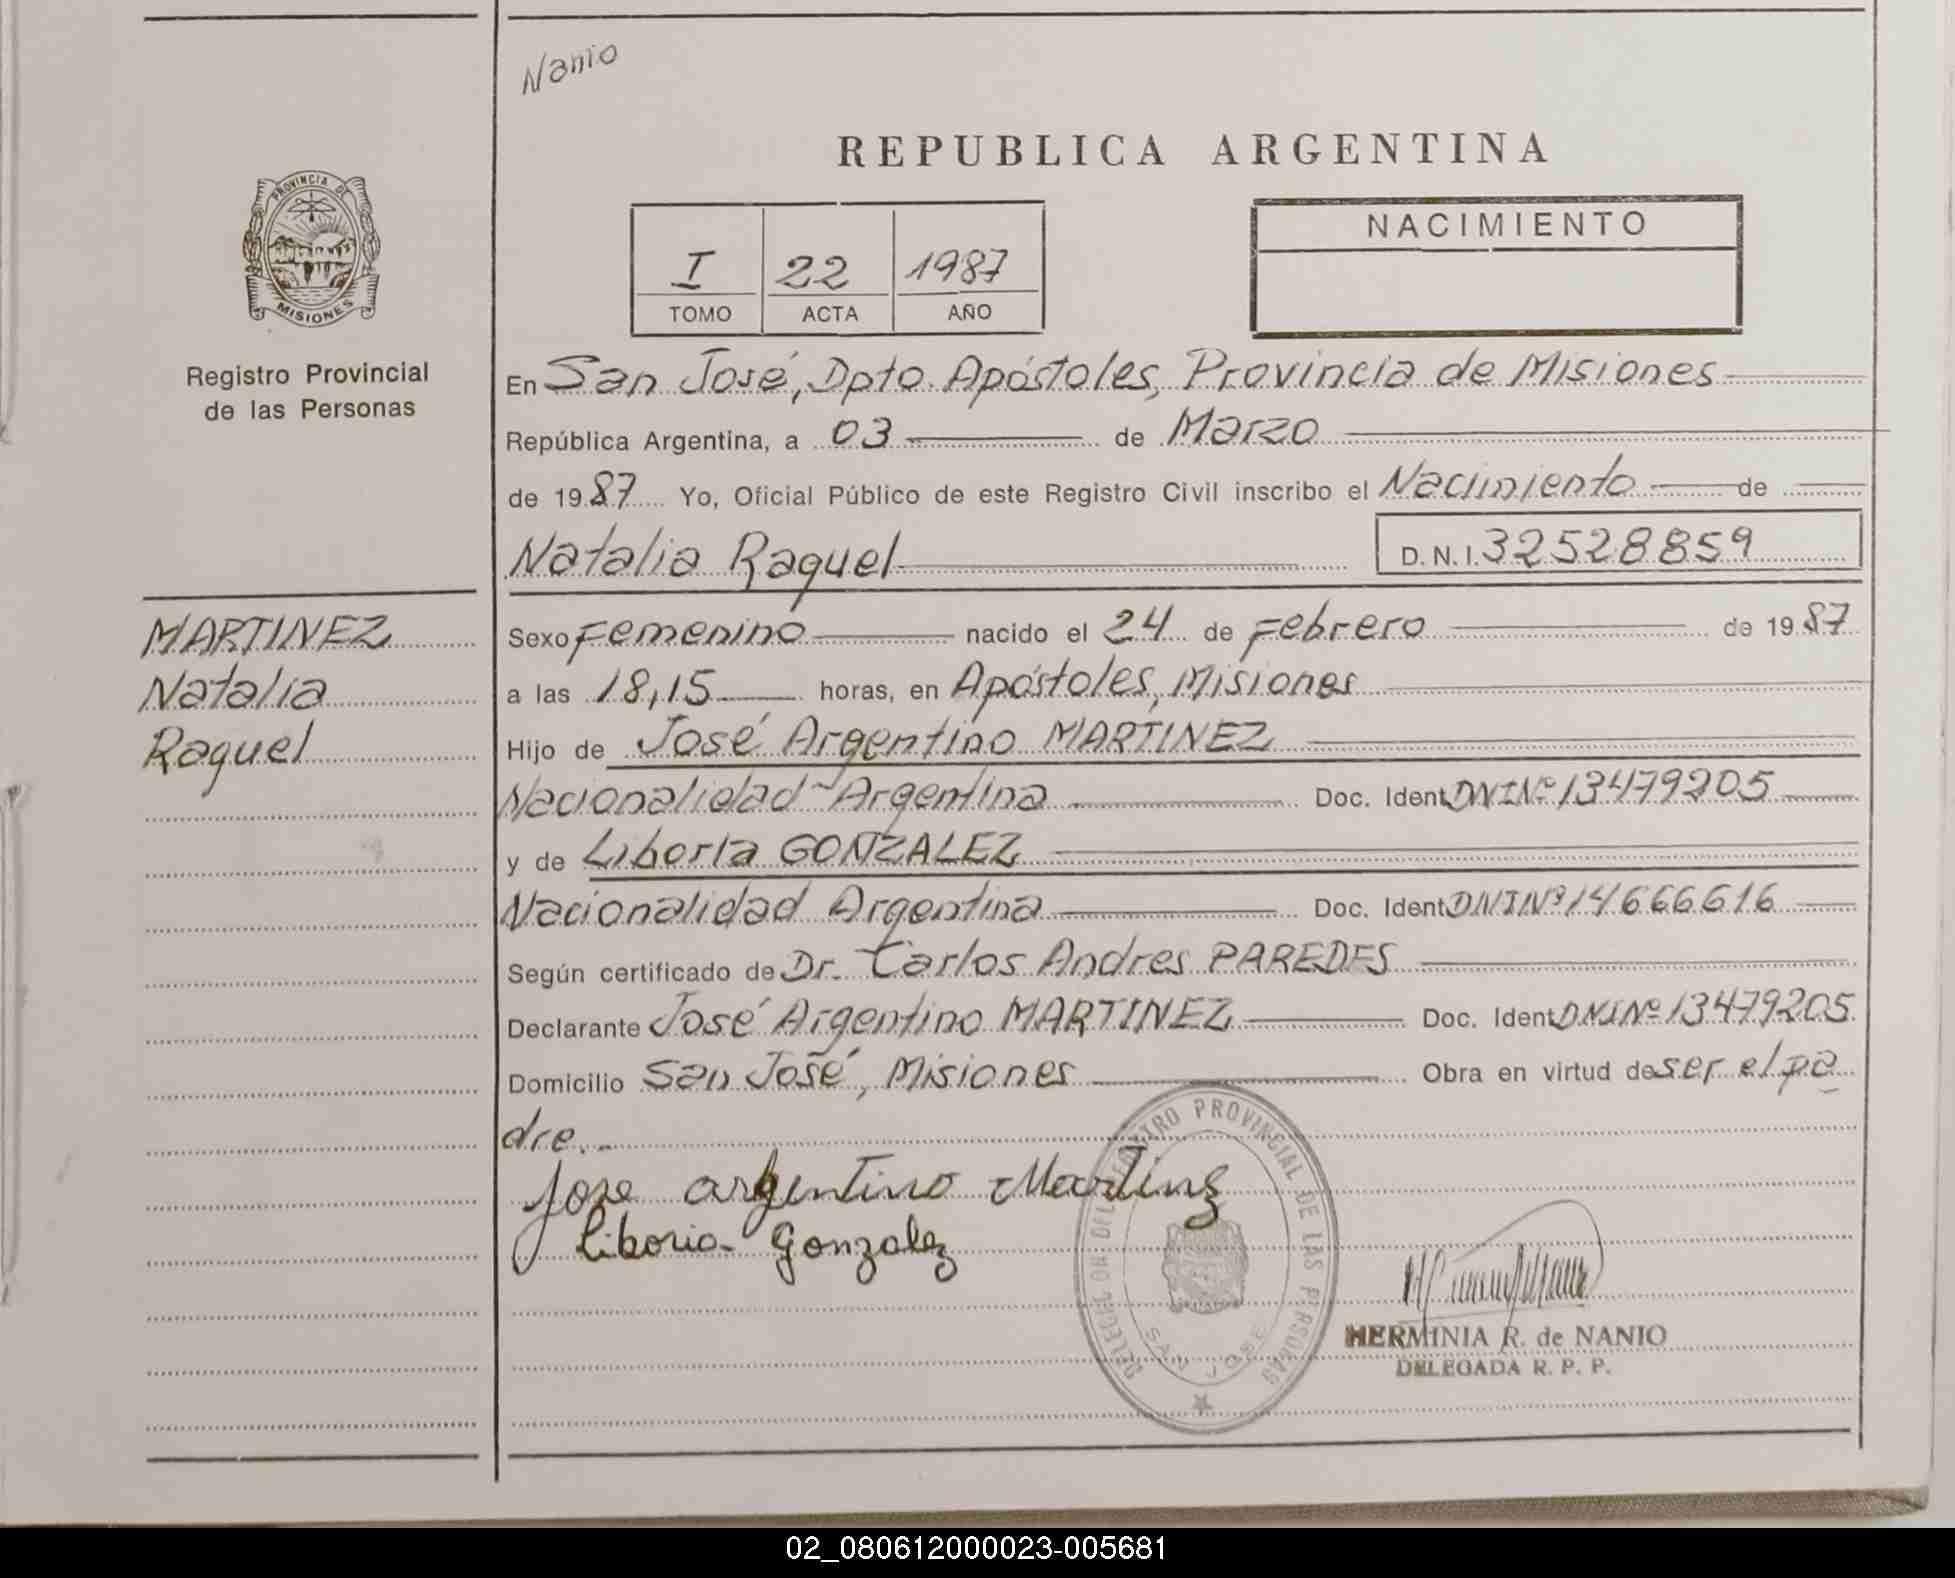 Nanio
REPUBLICA ARGENTINA
PROVINCIA DE
MISIONES
Registro Provincial
de las Personas
I 22 1987
TOMO ACTA AÑO
NACIMIENTO
En San José, Dpto. Apóstoles, Provincia de Misiones
República Argentina, a 03 de Marzo
de 1987 Yo, Oficial Público de este Registro Civil inscribo el Nacimiento de
Natalia Raquel D.N.I. 32528859
MARTINEZ
Natalia
Raquel
Sexo Femenino nacido el 24 de Febrero de 1987
a las 18,15 horas, en Apóstoles, Misiones
Hijo de José Argentino MARTINEZ
Nacionalidad Argentina Doc. Ident. DNI Nº 13479205
y de Liboria GONZALEZ
Nacionalidad Argentina Doc. Ident. DNI Nº 14666616
Según certificado de Dr. Carlos Andres PAREDES
Declarante José Argentino MARTINEZ Doc. Ident. DNI Nº 13479205
Domicilio San José, Misiones Obra en virtud de ser el pa
dre.-
Jose argentino Martinz
Liboria Gonzalez
DELEGACION DEL REGISTRO PROVINCIAL DE LAS PERSONAS
SAN JOSE
HERMINIA R. de NANIO
DELEGADA R. P. P.
02_080612000023-005681